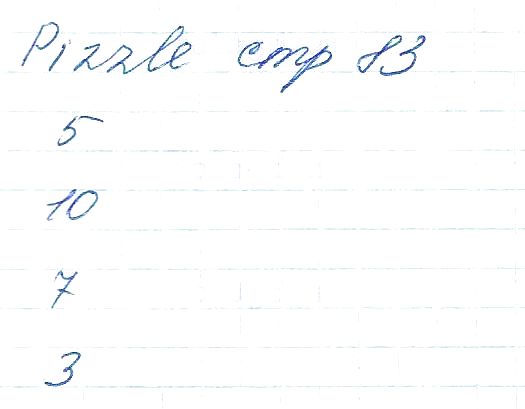 Pizzle стр 83
5
10
7
3